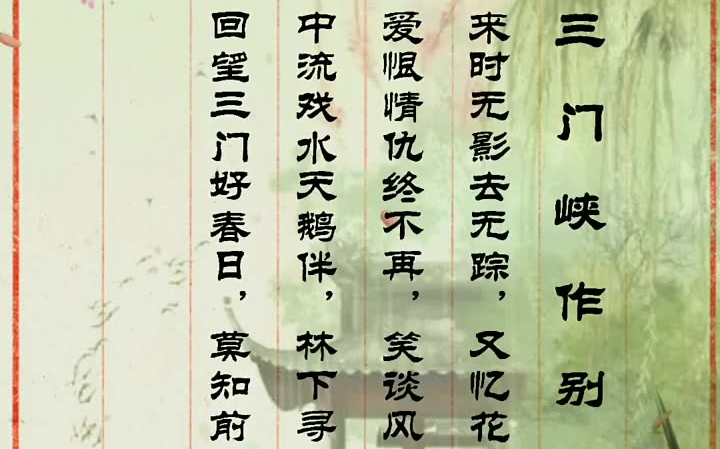 三门峡作别
来时无影去无踪，又忆花
爱恨情仇终不再，笑谈风
中流戏水天鹅伴，林下寻
回望三门好春日，莫知前